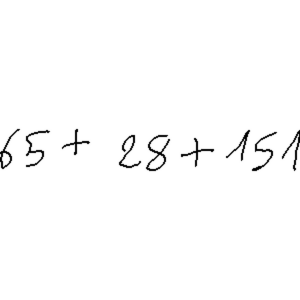 65 + 28 + 151